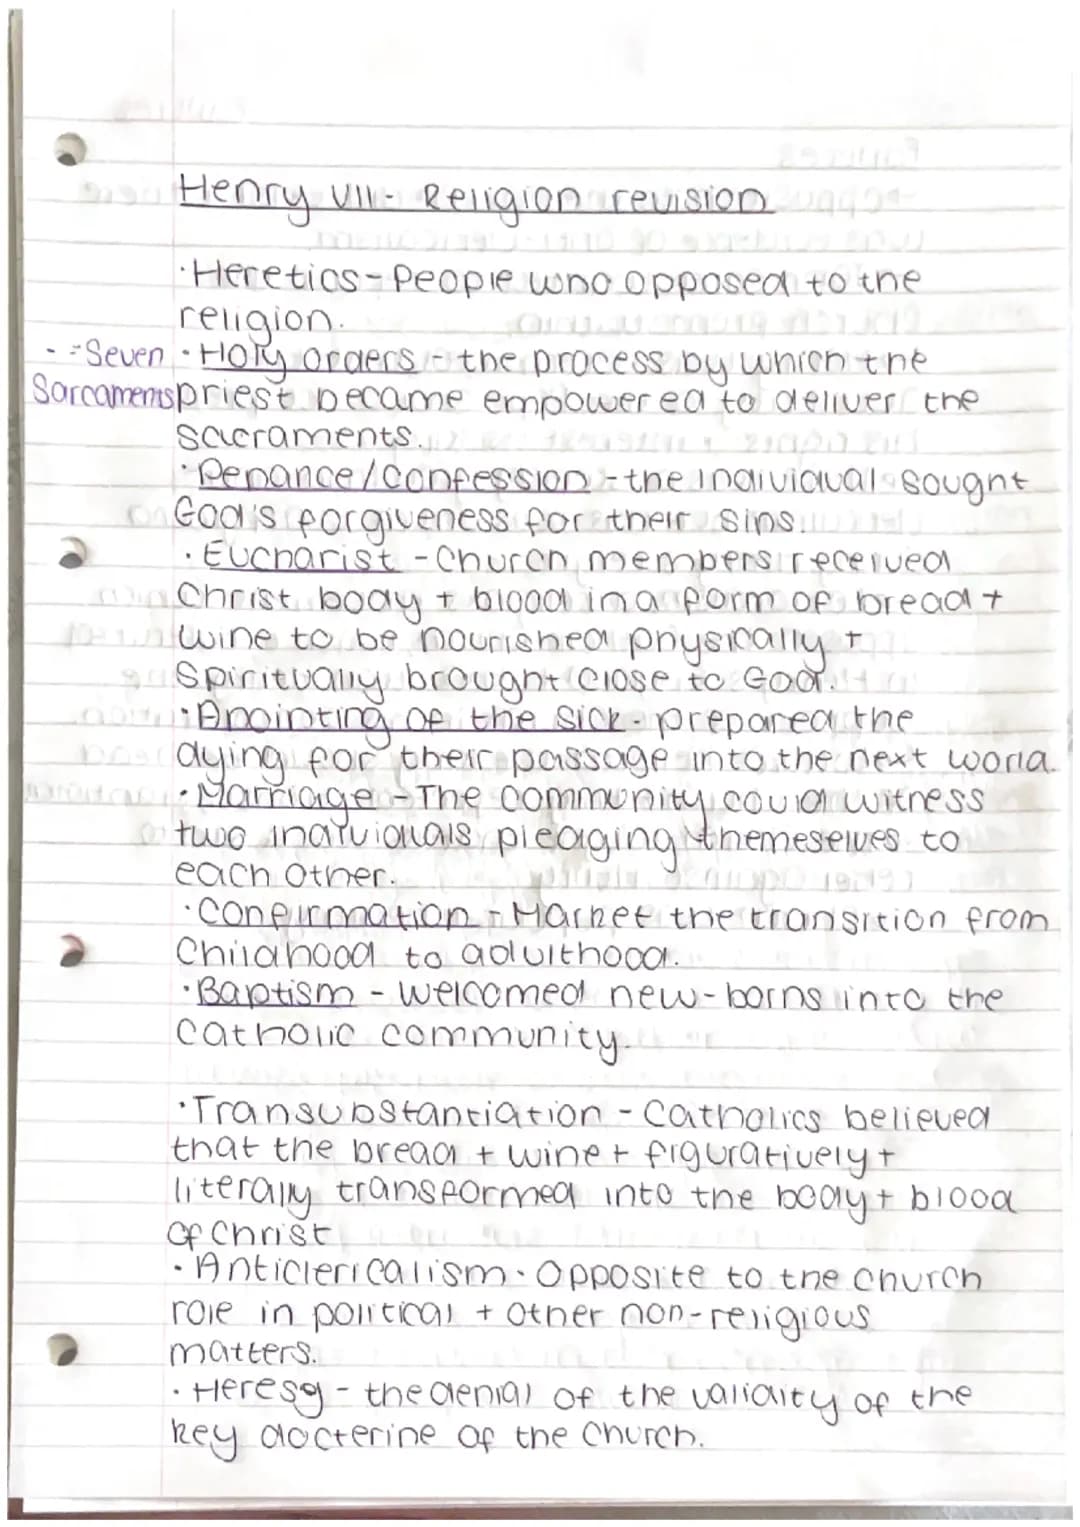 Henry VII - Religion revision
· Heretics - People who opposed to the
religion.
- - Seven · Holy orders - the process by which the
Sarcaments priest became empowered to deliver the
sacraments.
· Penance / Confession - the individual sought
God's forgiveness for their sins.
· Eucharist - Church members received
Christ body + blood in a form of bread +
wine to be nourished physically +
Spiritually brought close to God.
· Anointing of the sick - prepared the
dying for their passage into the next world.
· Marriage - The community could witness
two individuals pledging themeselves to
each other.
· Confirmation - Marked the transition from
Childhood to adulthood.
· Baptism - welcomed new-borns into the
Catholic community.
· Transubstantiation - Catholics believed
that the bread + wine + figuratively +
literally transformed into the body + blood
of Christ
· Anticlericalism - Opposite to the Church
role in political + other non-religious
matters.
· Heresy - the denial of the validity of the
key docterine of the Church.